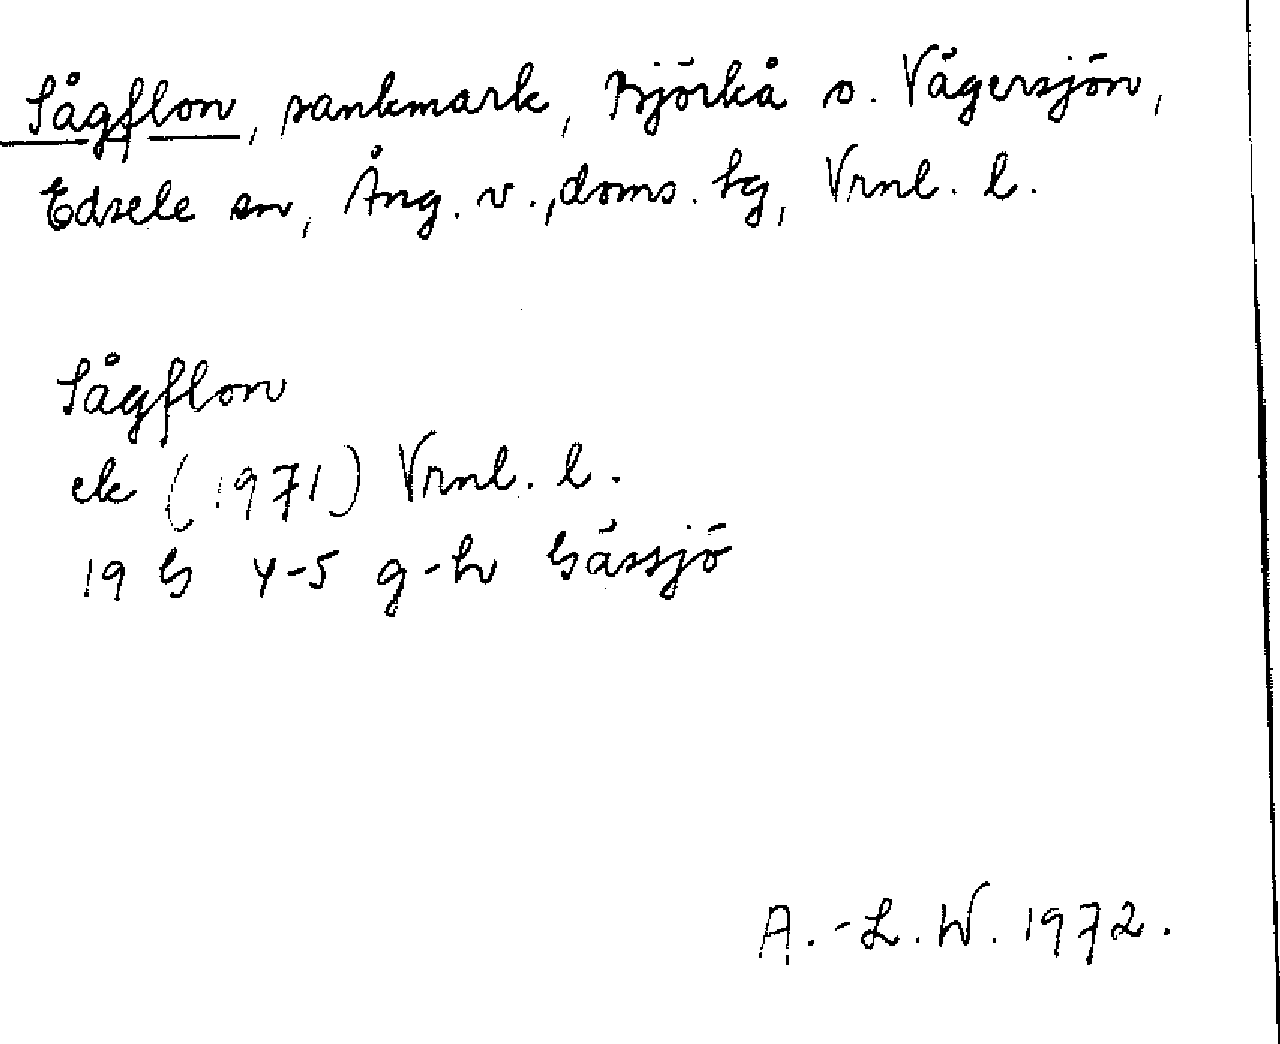 Sågflon, sankmark, Björkå o. Vägersjön,
Edsele sn, Ång. v., doms. tg, Vrnl. l.
Sågflon
ek (1971) Vrnl. l.
19 G 4-5 g-h Gåssjö
A.-L.W. 1972.